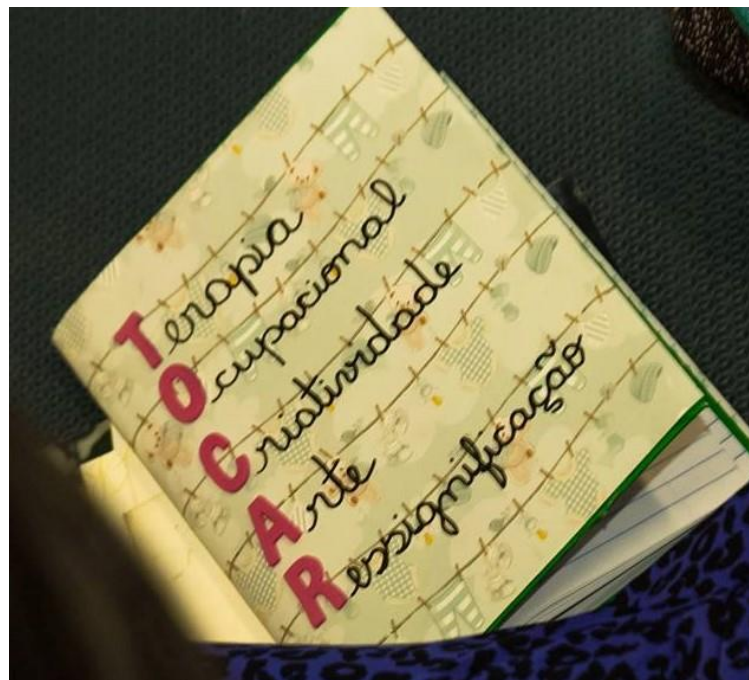 Terapia
Ocupacional
Criatividade
Arte
Ressignificação